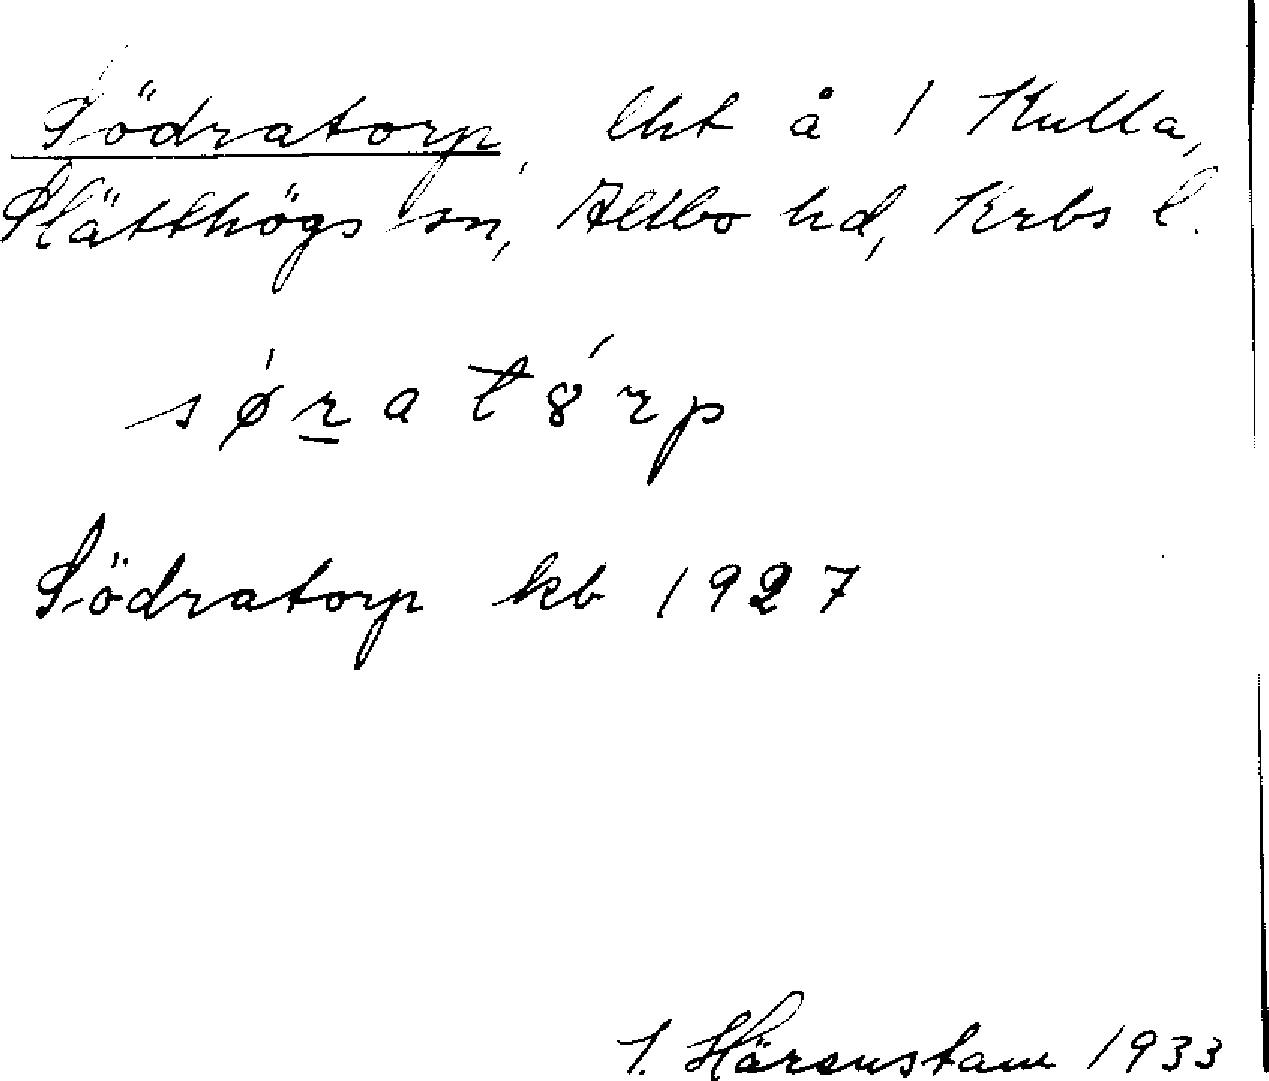 Södratorp, lht å 1 Kulla,
Slätthögs sn, Allbo hd, Krbs l.
sǿra tó̤rp
Södratorp kb 1927
Härenstam 1933